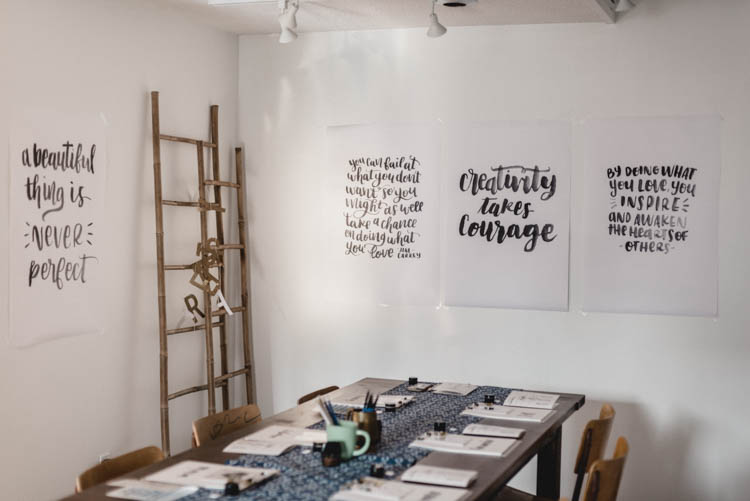 a beautiful
thing is
NEVER
perfect
you can fail at
what you don't
want so you
might as well
take a chance
on doing what
you love JIM
CARREY
creativity
takes
Courage
BY DOING WHAT
YOU LOVE, YOU
INSPIRE
AND AWAKEN
THE HEARTS OF
OTHERS
R A